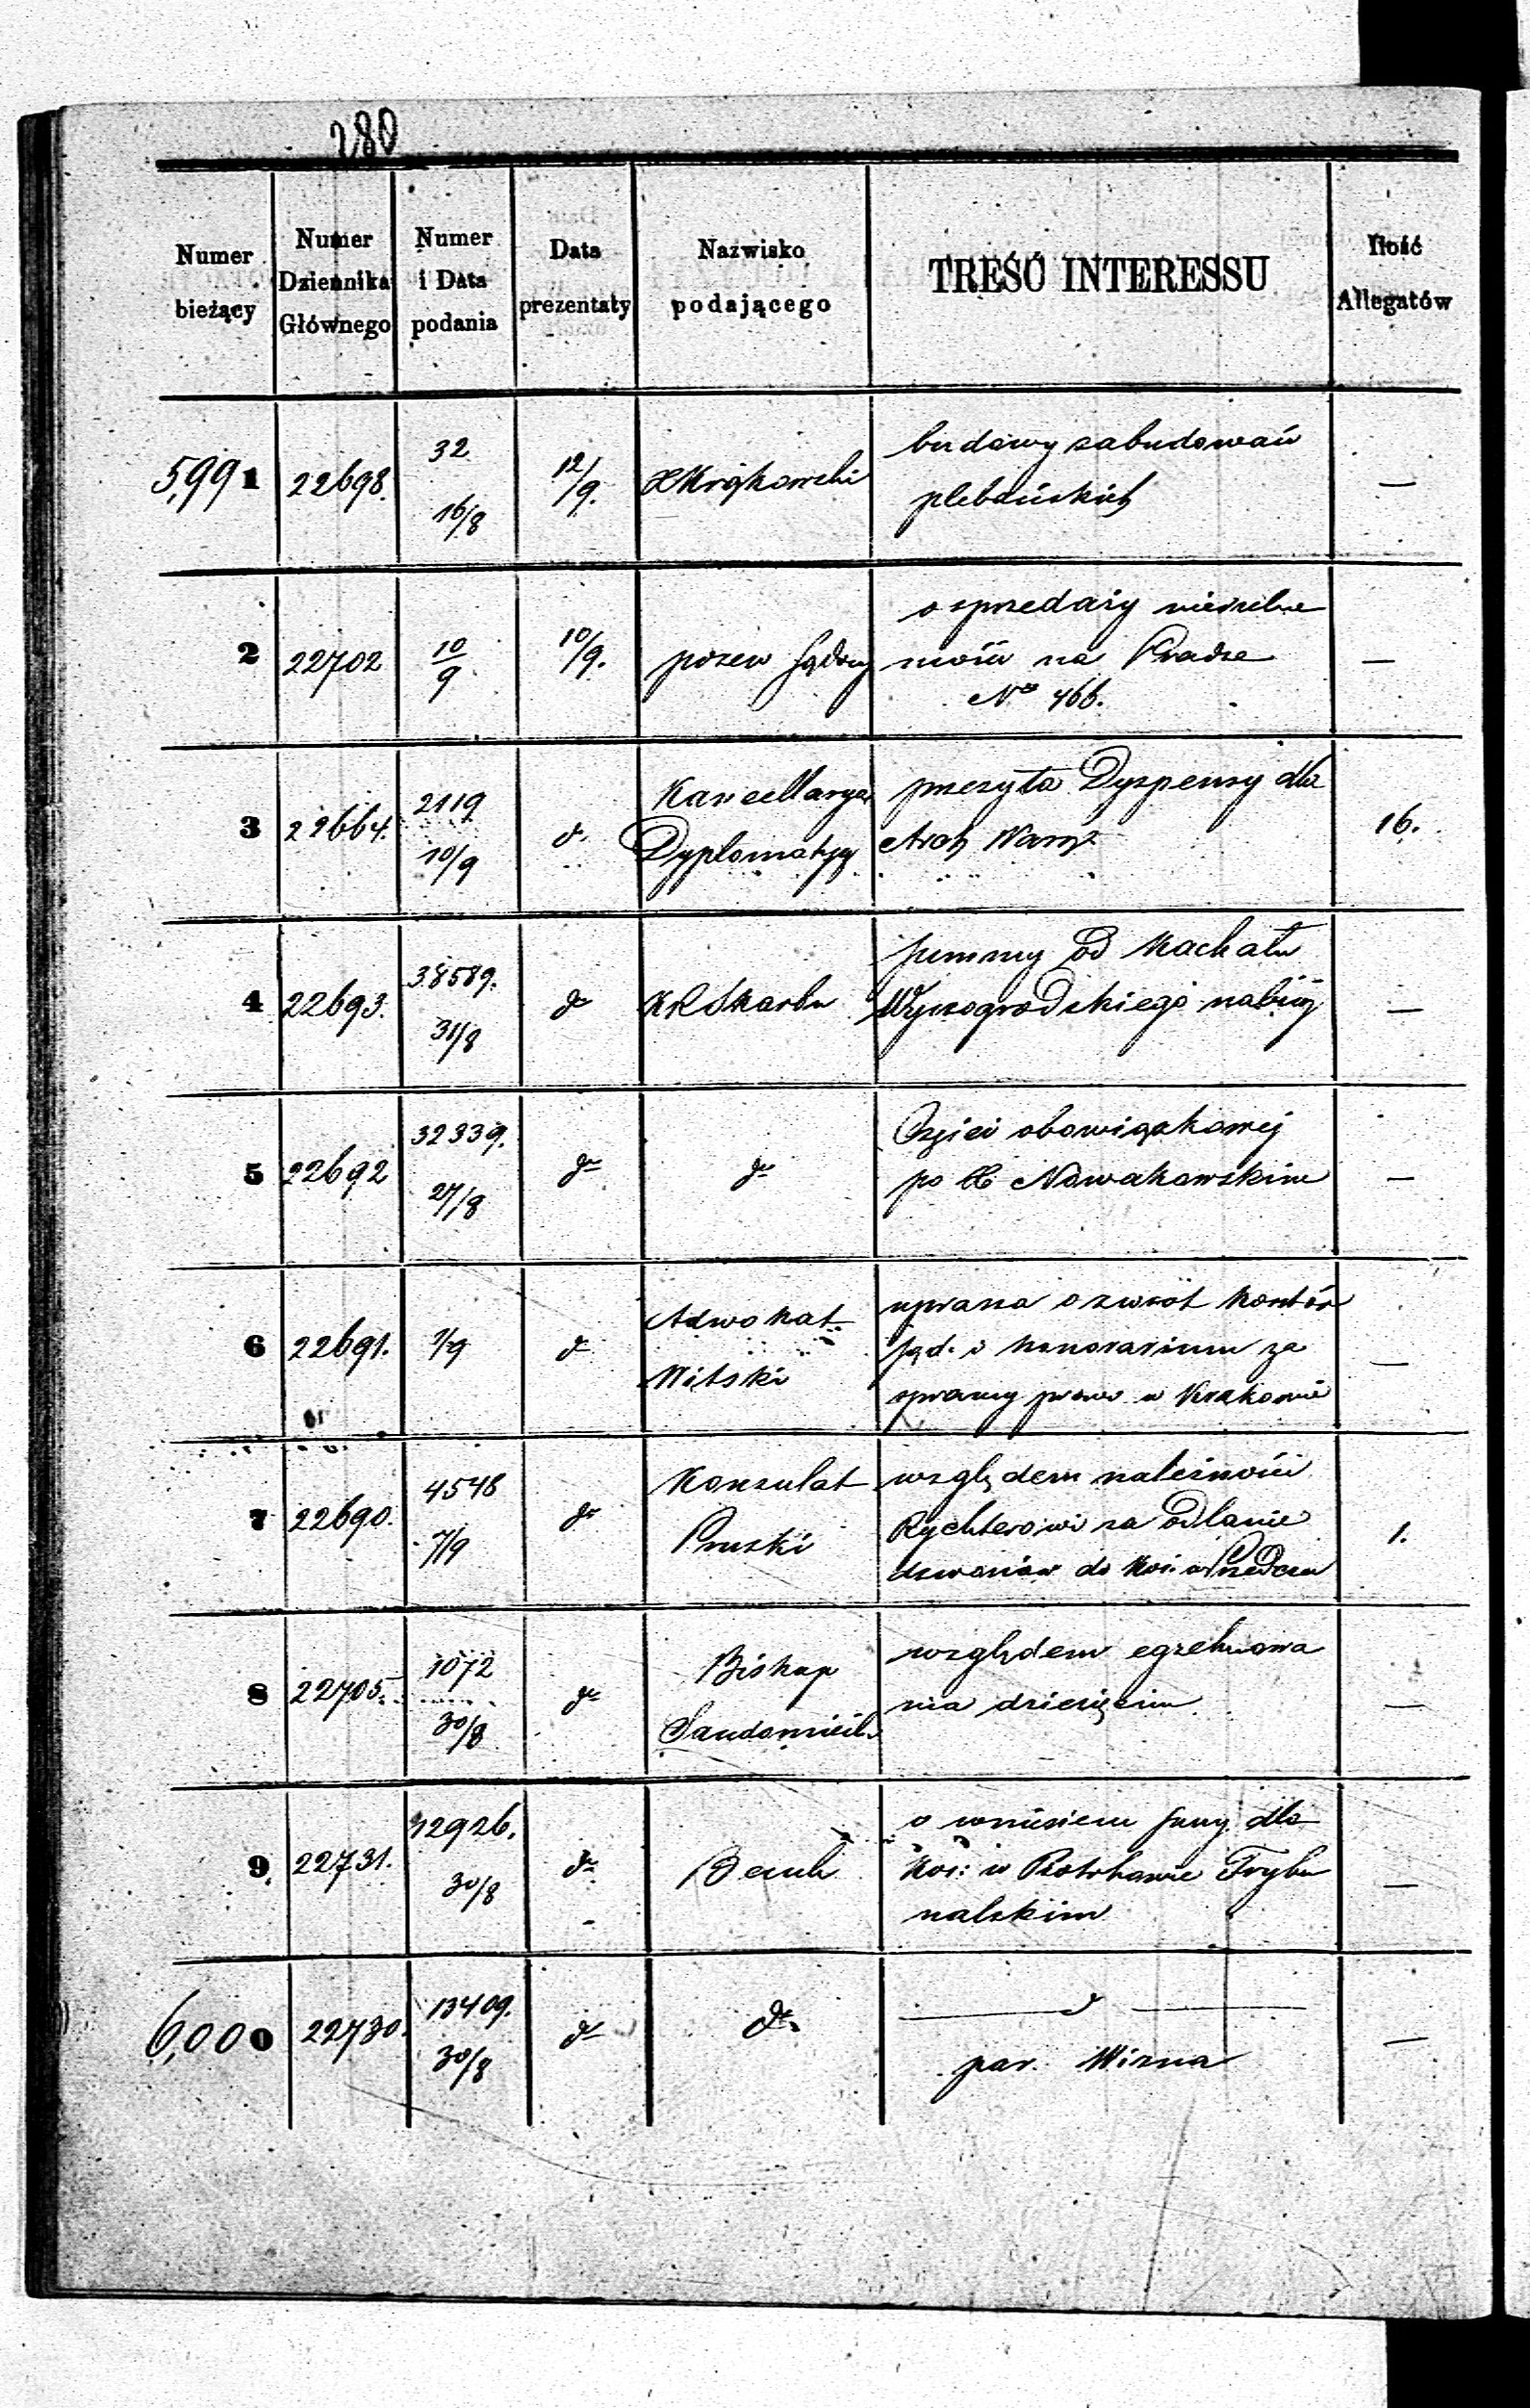 280
Numer bieżący
Numer Dziennika Głównego
Numer i Data podania
Data prezentaty
Nazwisko podającego
TREŚĆ INTERESSU
Ilość Allegatów
5,991 22698. 32 16/8 12/9. budowy zabudowań —
plebańskich
2 22702 10/9 10/9. pozew sądowy o sprzedaży nieruchomości na Pradze —
No 466.
3 22664. 2119 10/9 d. Kancellarya przesyła Dyspensy dla 16.
Dyplomatyczna Arch Warsz
4 22693. 38589. 31/8 do KR Skarbu summy od Kachału —
Wyszogrodzkiego
5 22692 32339. 27/8 do do obowiązkowej —
po Nowakowskim
6 22691. 7/9 do Adwokat o zwrot kosztów —
Witski sąd. i honorarium za
sprawy w Krakowie
7 22690. 4548 7/9 do Konsulat względem należności 1.
Pruski Rychterowi za odlanie
dzwonów do Koś. w
8 22705. 1072 30/8 do Biskup względem egzekwowa —
Sandomiers. nia dziesięcin
9 22731. 12926. 30/8 do Bank o wniesieniu sumy dla —
Koś: w Piotrkowie Trybu
nalskim
6,000 22730. 13409. 30/8 do do — d — —
par. Wizna